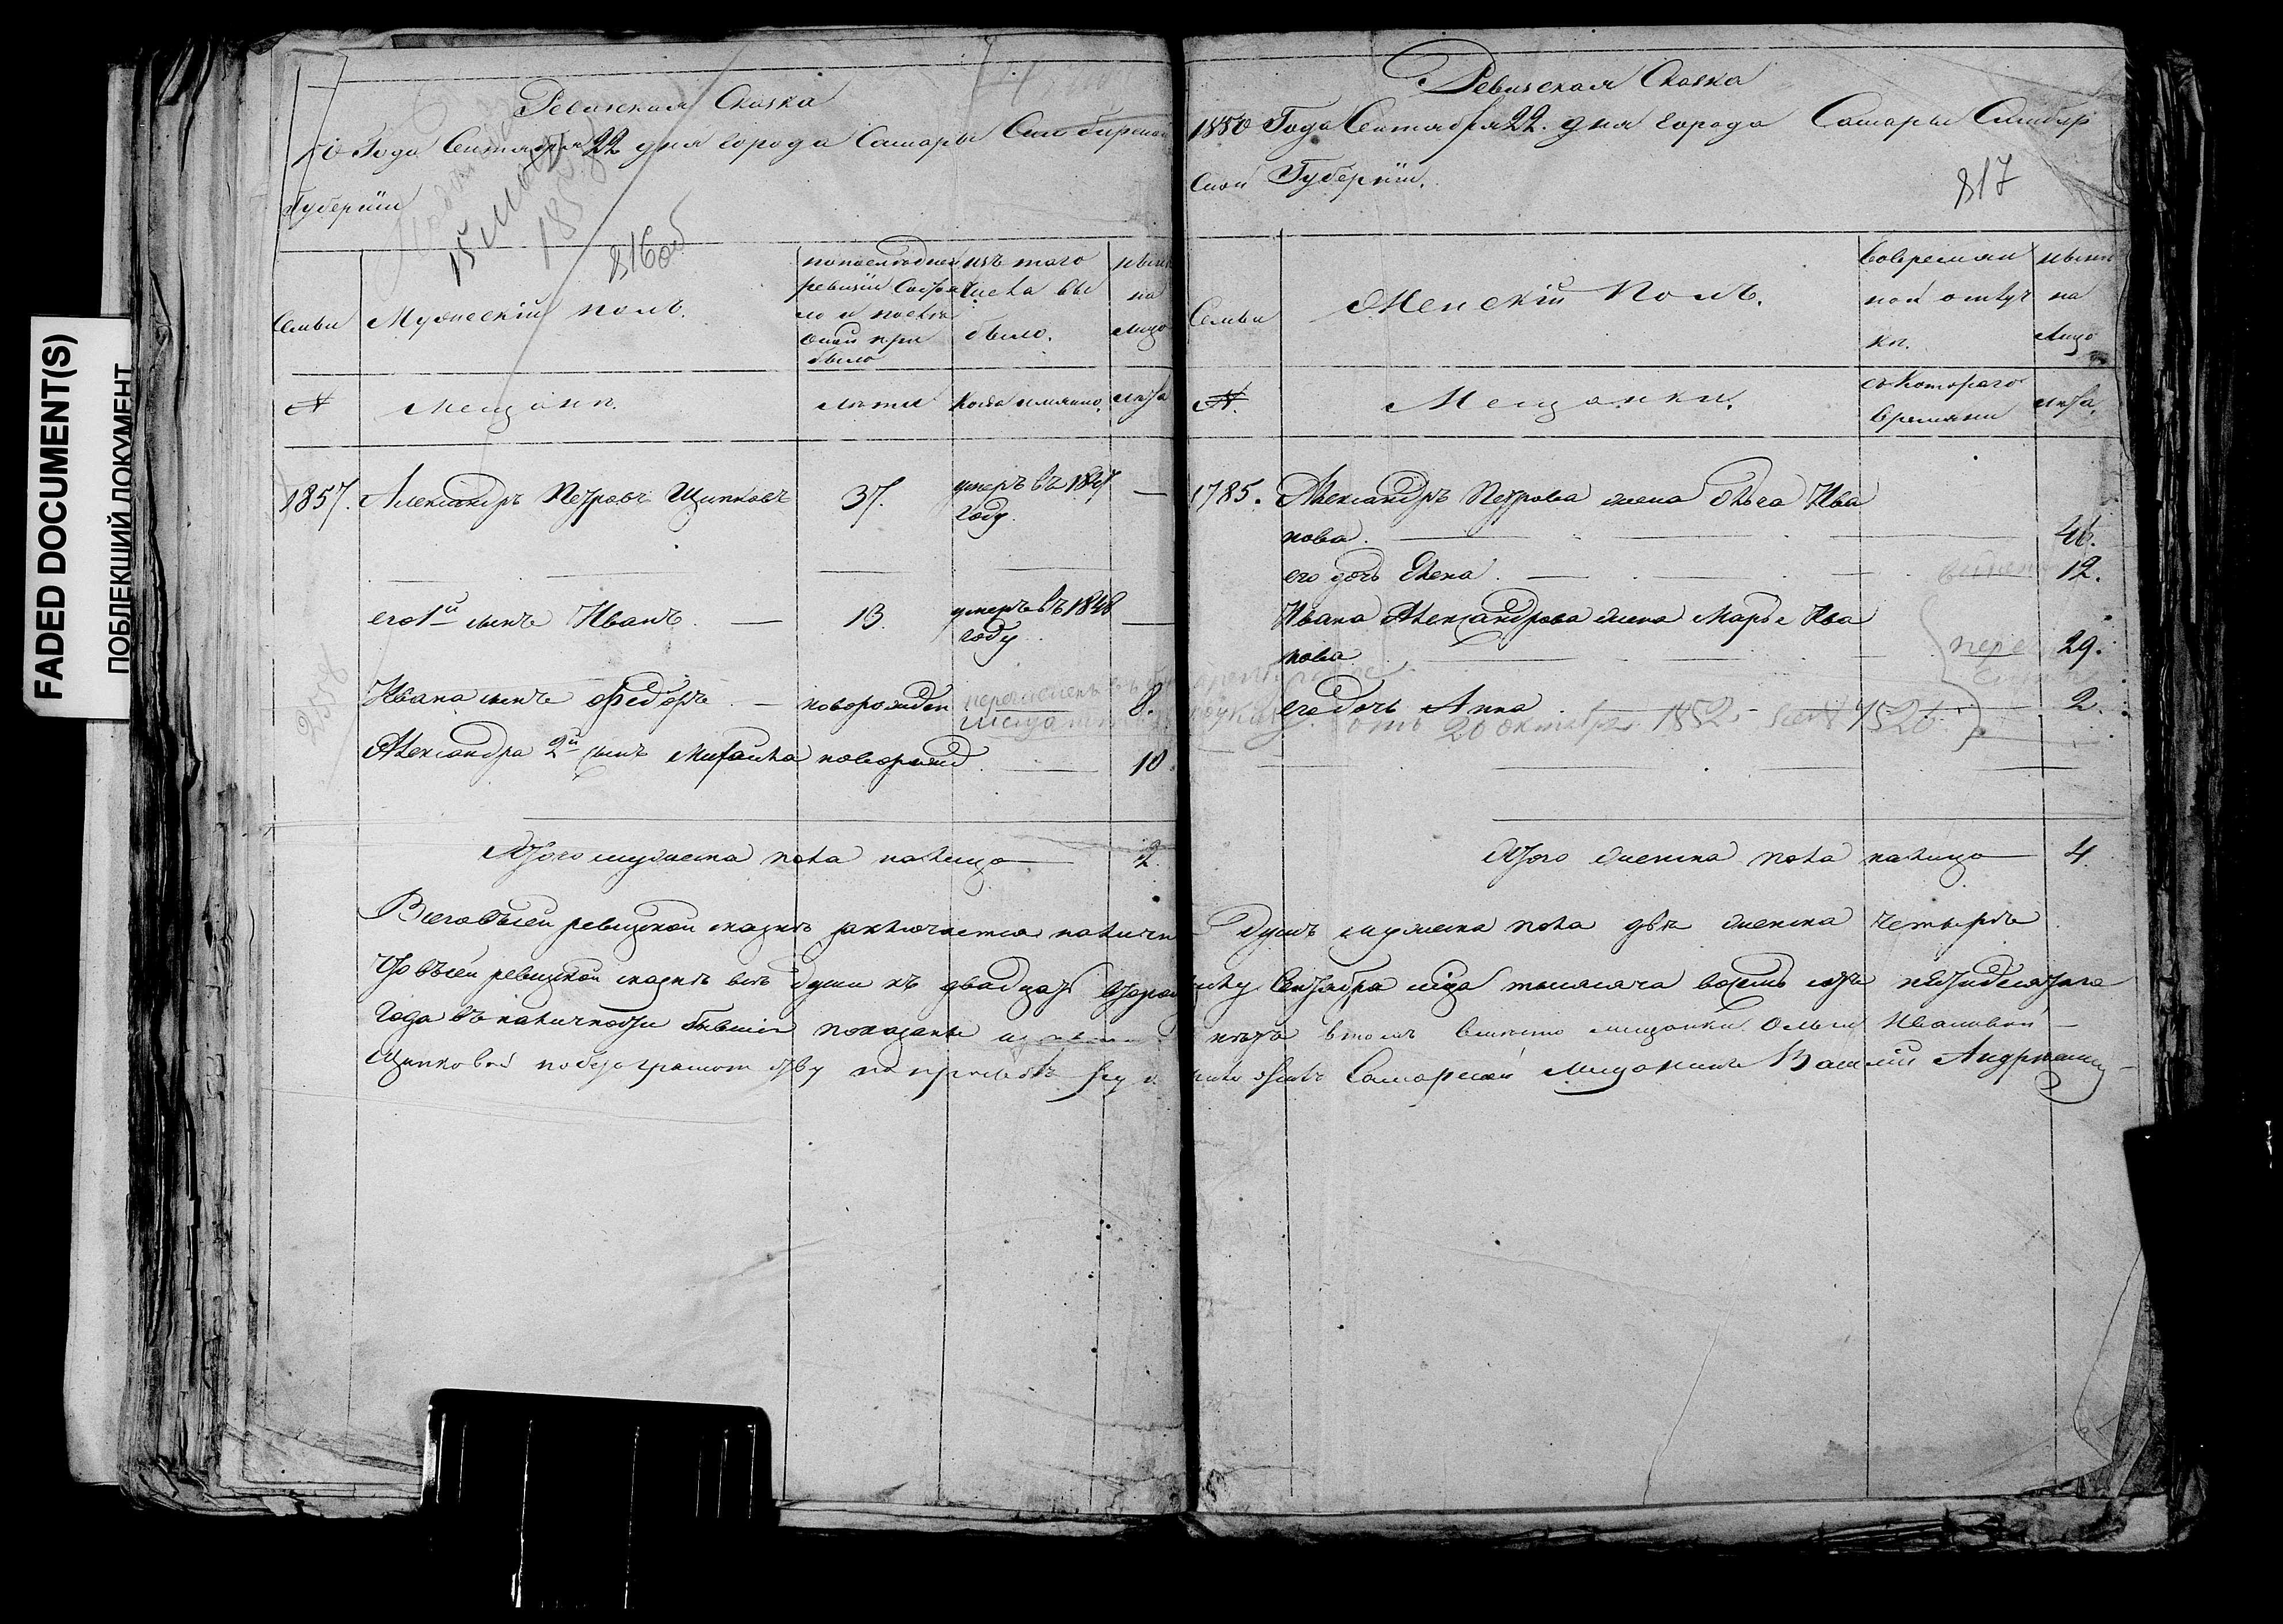 FADED DOCUMENT(S)
ПОБЛЕКШИЙ ДОКУМЕНТ
Ревизская Сказка
Года Сентября 22 дня города Самары Симбирской
Губернiи
15
816об
Семьи
Мужескiй полъ.
по последней
ревизiи состоя
ло и после
оной при
было
изъ того
числа вы
было.
ныне
на
лицо
№
Мещане.
лета
Когда имянно.
лета
1857. Александръ Петровъ Щипковъ 37. умеръ въ 1847
году.
его 1й сынъ Иванъ. 13. умеръ въ 1848
году.
Ивана сынъ Федоръ новорожден 8.
Александра 2й сынъ Михайла новорожд 10
Итого мужеска пола налицо 2.
Ревизская Сказка
1850 Года Сентября 22. дня города Самары Симбир
ской Губернiи.
817
Семьи
Женскiй Полъ.
Во времян
ной отлуч
ки.
ныне
на
лицо
№.
Мещанки.
съ котораго
времяни
лета.
1785. Александръ Петрова жена Ольга Ива
нова. 46.
его дочь Елена 12.
Ивана Александрова жена Марья Ива
нова 29.
его дочь Анна 2.
отъ 20 октября 1852
Итого женска пола налицо 4
Всего въ сей ревизкой сказке заключается налично душъ мужеска пола две женска четыре
Что въ сей ревизкой сказке все души къ двадцать второму числу Сентября мца тысяча восемь сотъ пятидесятаго
Года въ наличности бывшiя показаны нетъ въ томъ вместо мещанки Ольги Ивановой
Щипковой по безграмотству по прозьбе Самарской мещанинъ Василiй